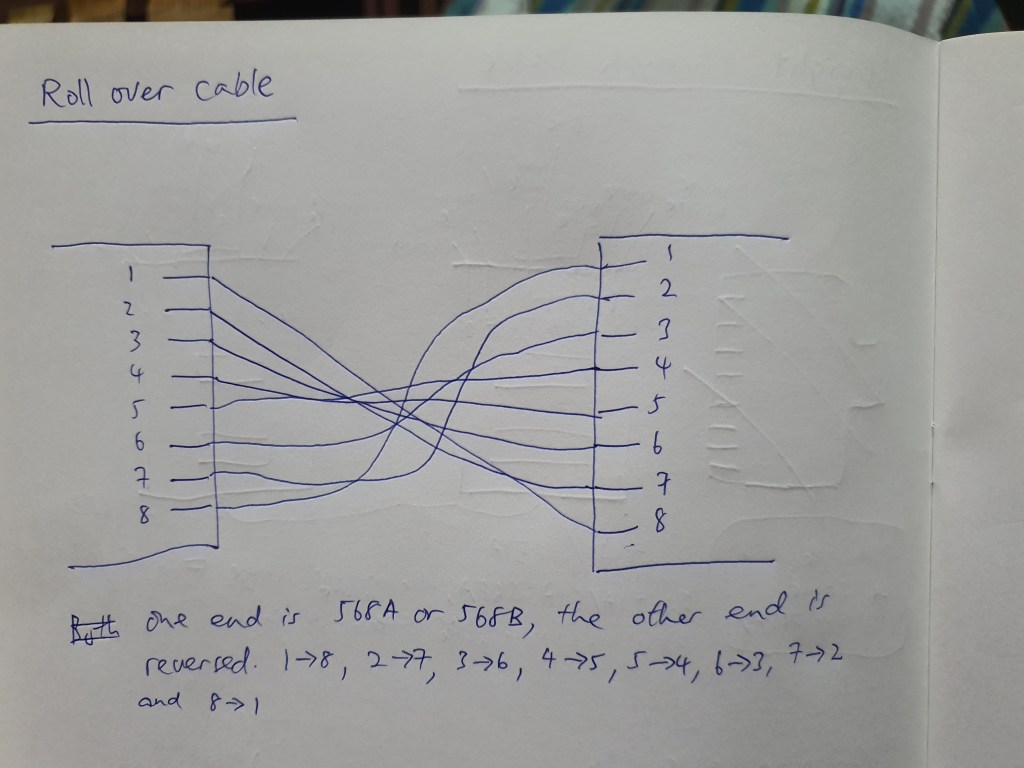 Roll over cable
1 1
2 2
3 3
4 4
5 5
6 6
7 7
8 8
one end is 568A or 568B, the other end is
reversed. 1→8, 2→7, 3→6, 4→5, 5→4, 6→3, 7→2
and 8→1